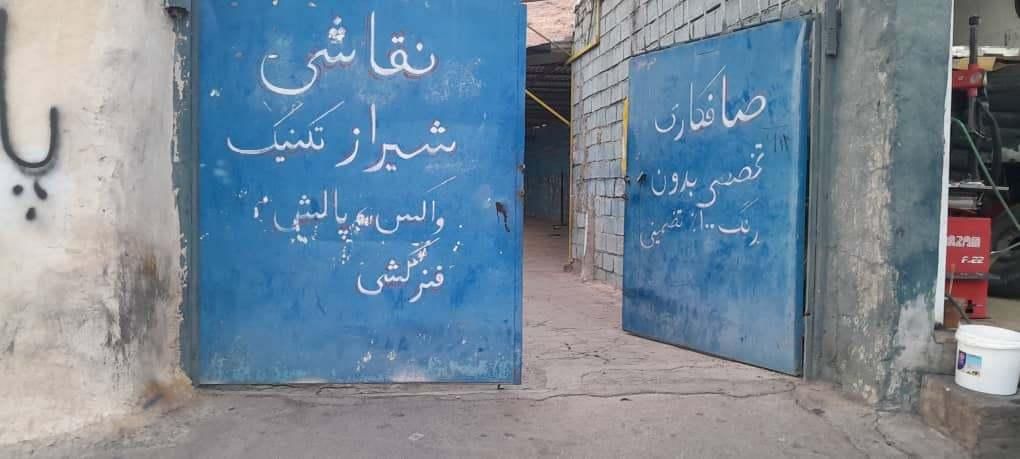 نقاشی
شیراز تکنیک
واکس و پالیش
فنرکشی
صافکاری
تخصصی بدون
رنگ ۱۰۰٪ تضمینی
AZAM
F.22